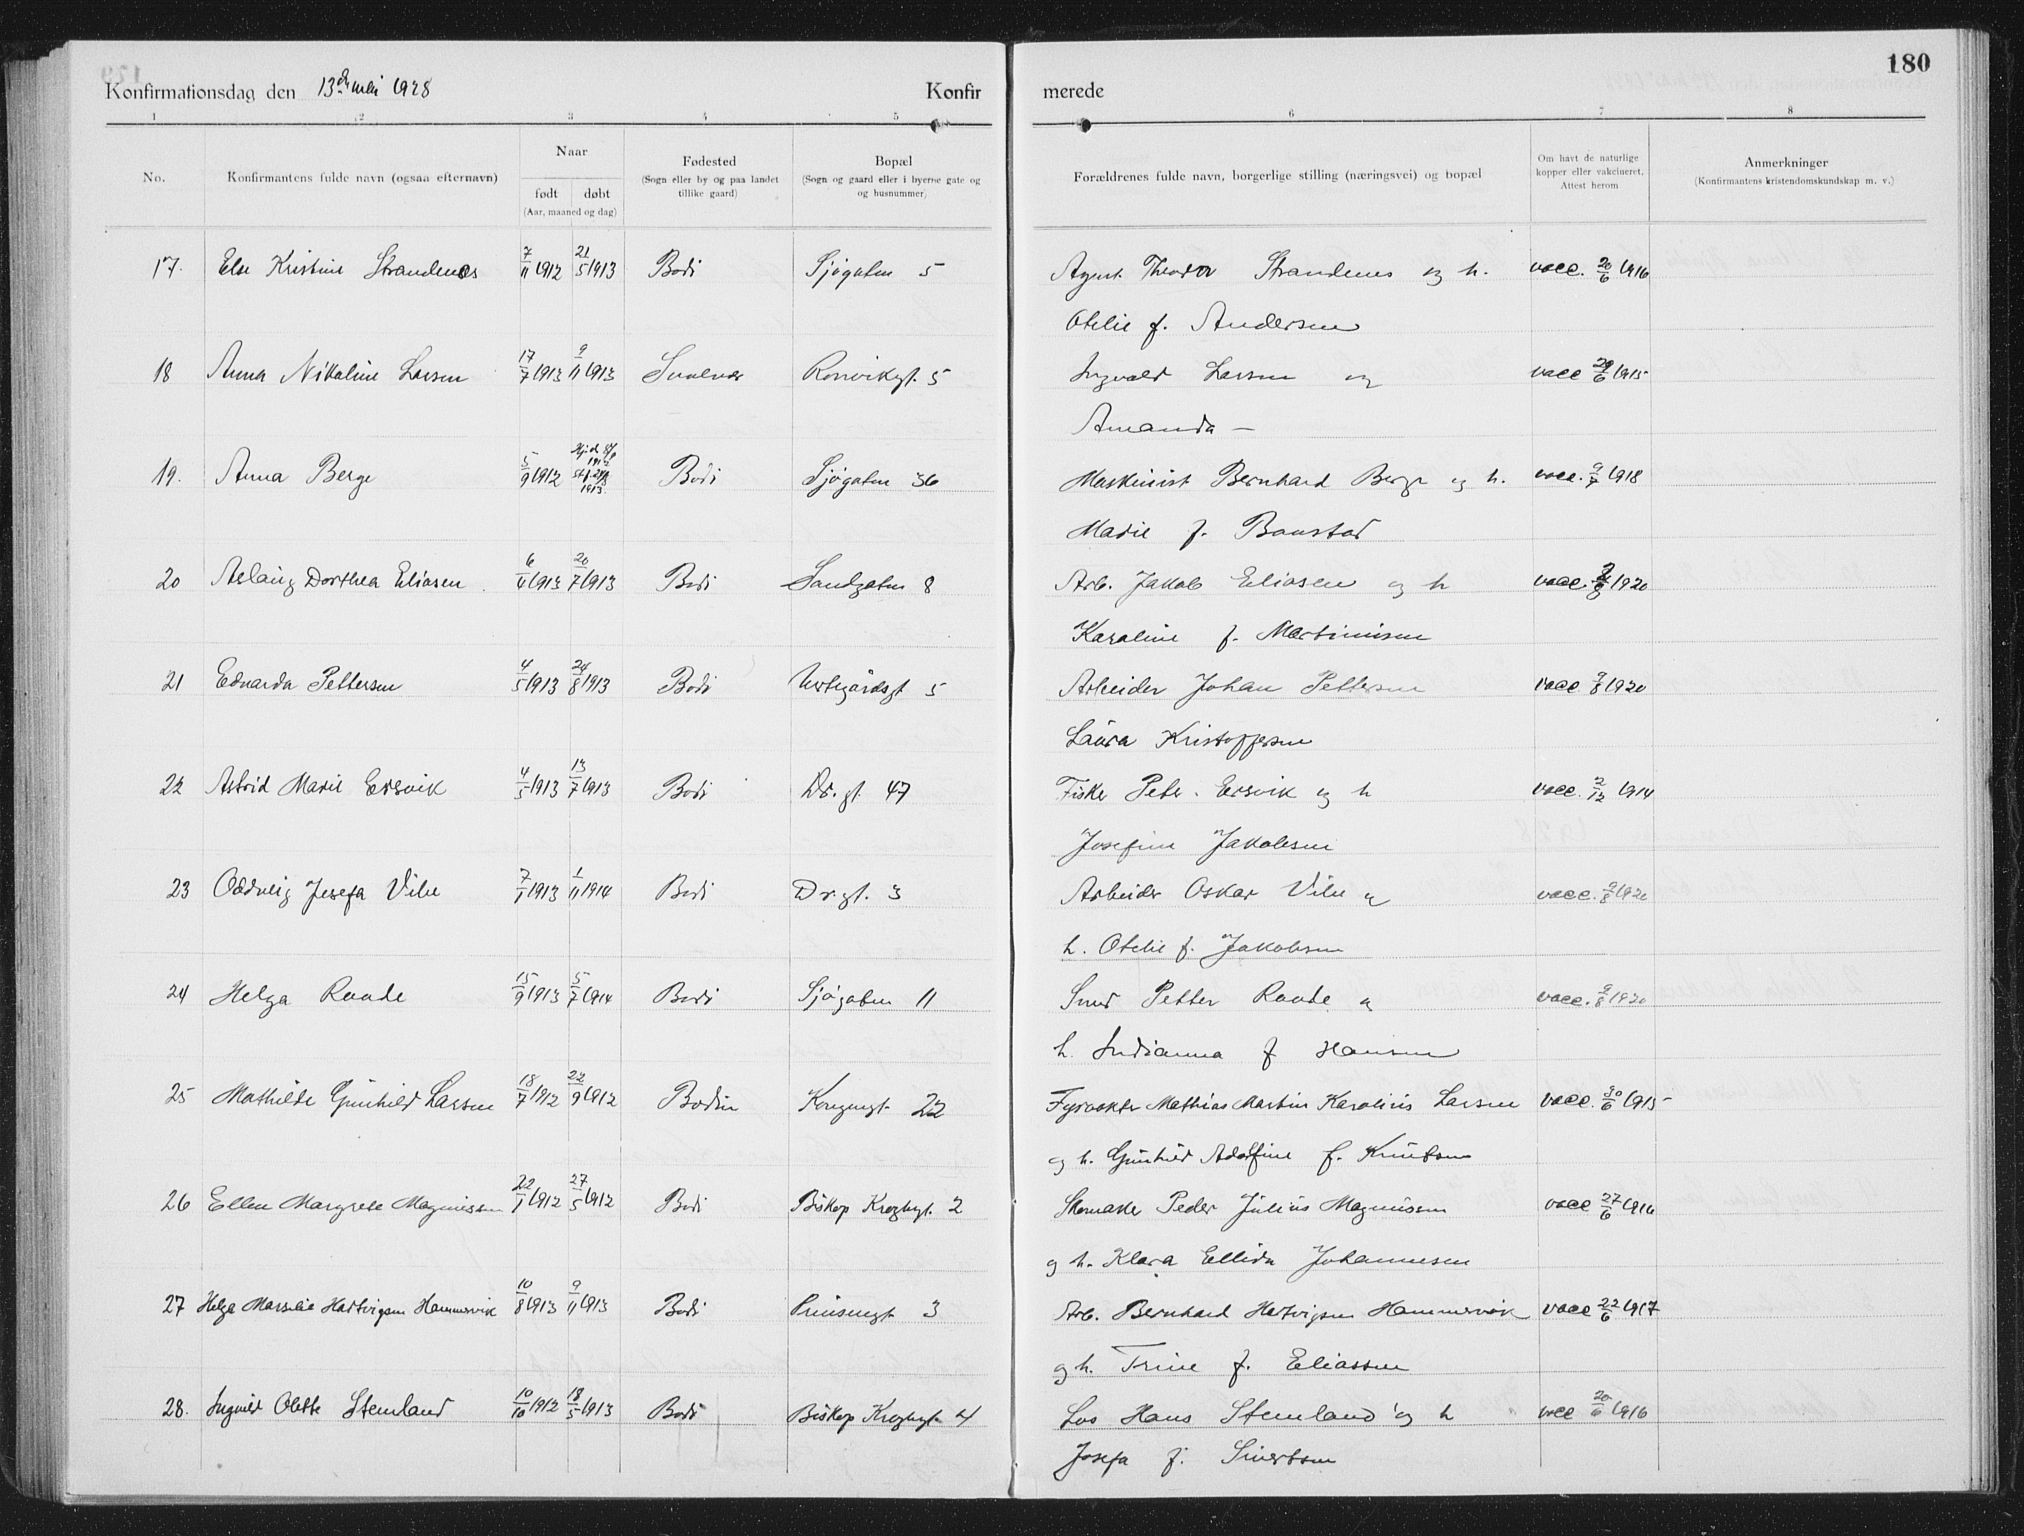 180
Konfirmationsdag den 13de mai 1928 Konfirmerede
1 2 3 4 5 6 7 8
No. Konfirmantens fulde navn (ogsaa efternavn) Naar født døbt (Aar, maaned og dag) Fødested (Sogn eller by og paa landet tillike gaard) Bopæl (Sogn og gaard eller i byerne gate og og husnummer) Forældrenes fulde navn, borgerlige stilling (næringsvei) og bopæl Om havt de naturlige kopper eller vakcineret. Attest herom Anmerkninger (Konfirmantens kristendomskundskap m. v.)
17. Else Kristine Strandenes 7/11 1912 21/5 1913 Bodø Sjøgaten 5 Agent Theodor Strandenes og h. vacc. 20/6 1916
Otelie f. Andersen
18 Anna Nikoline Larsen 17/7 1913 9/11 1913 Svolvær Rønvikgt. 5 Ingvald Larsen og vacc 29/6 1915
Amanda —
19. Anna Berge 5/9 1912 Bodø Sjøgaten 36 Maskinist Bernhard Berge og h. vacc. 9/7 1918
Marie f. Baustad
20 Aslaug Dorthea Eliasen 6/11 1913 20/7 1913 Bodø Sandgaten 8 Arb. Jakob Eliasen og h vacc. 1920
Karoline f. Martinisen
21 Edvarda Pettersen 4/5 1913 24/8 1913 Bodø 5 Arbeider Johan Pettersen vacc 9/8 1920
Laura Kristoffersen
22 Astrid Marie Ersvik 4/5 1913 13/7 1913 Bodø Dr. gt. 47 Fisker Peter Ersvik og h vacc. 2/12 1914
Josefine Jakobsen
23 Oddveig Josefa Vibe 7/1 1913 1/11 1914 Bodø Dr. gt. 3 Arbeider Oskar Vibe og vacc. 9/8 1920
h. Otelie f. Jakobsen
24 Helga Raade 15/9 1913 5/7 1914 Bodø Sjøgaten 11 Smed Petter Raade og vacc. 9/8 1920
h. Indianna f Hansen
25 Mathilde Gunhild Larsen 18/7 1912 22/9 1912 Bodin Kongensgt. 22 Fyrvokter Mathias Martin Karolius Larsen vacc. 30/6 1915
og h. Gunhild Adolfine f. Knutsen
26 Ellen Margrete Magnussen 22/1 1912 27/5 1912 Bodø Biskop Kroghsgt. 2 Skomaker Peder Julius Magnussen vacc 27/6 1916
og h. Klara Ellida Johannesen
27 Helga Marselie Hartvigsen Hammervik 10/8 1913 9/11 1913 Bodø Prinsensgt 3 Arb. Bernhard Hartvigsen Hammervik vacc 22/6 1917
og h. Trine f. Eliassen
28. Ingvild Olette Stemland 10/10 1912 18/5 1913 Bodø Biskop Kroghsgt. 4 Los Hans Stemland og h vacc 20/6 1916
Josefa f. Sivertsen